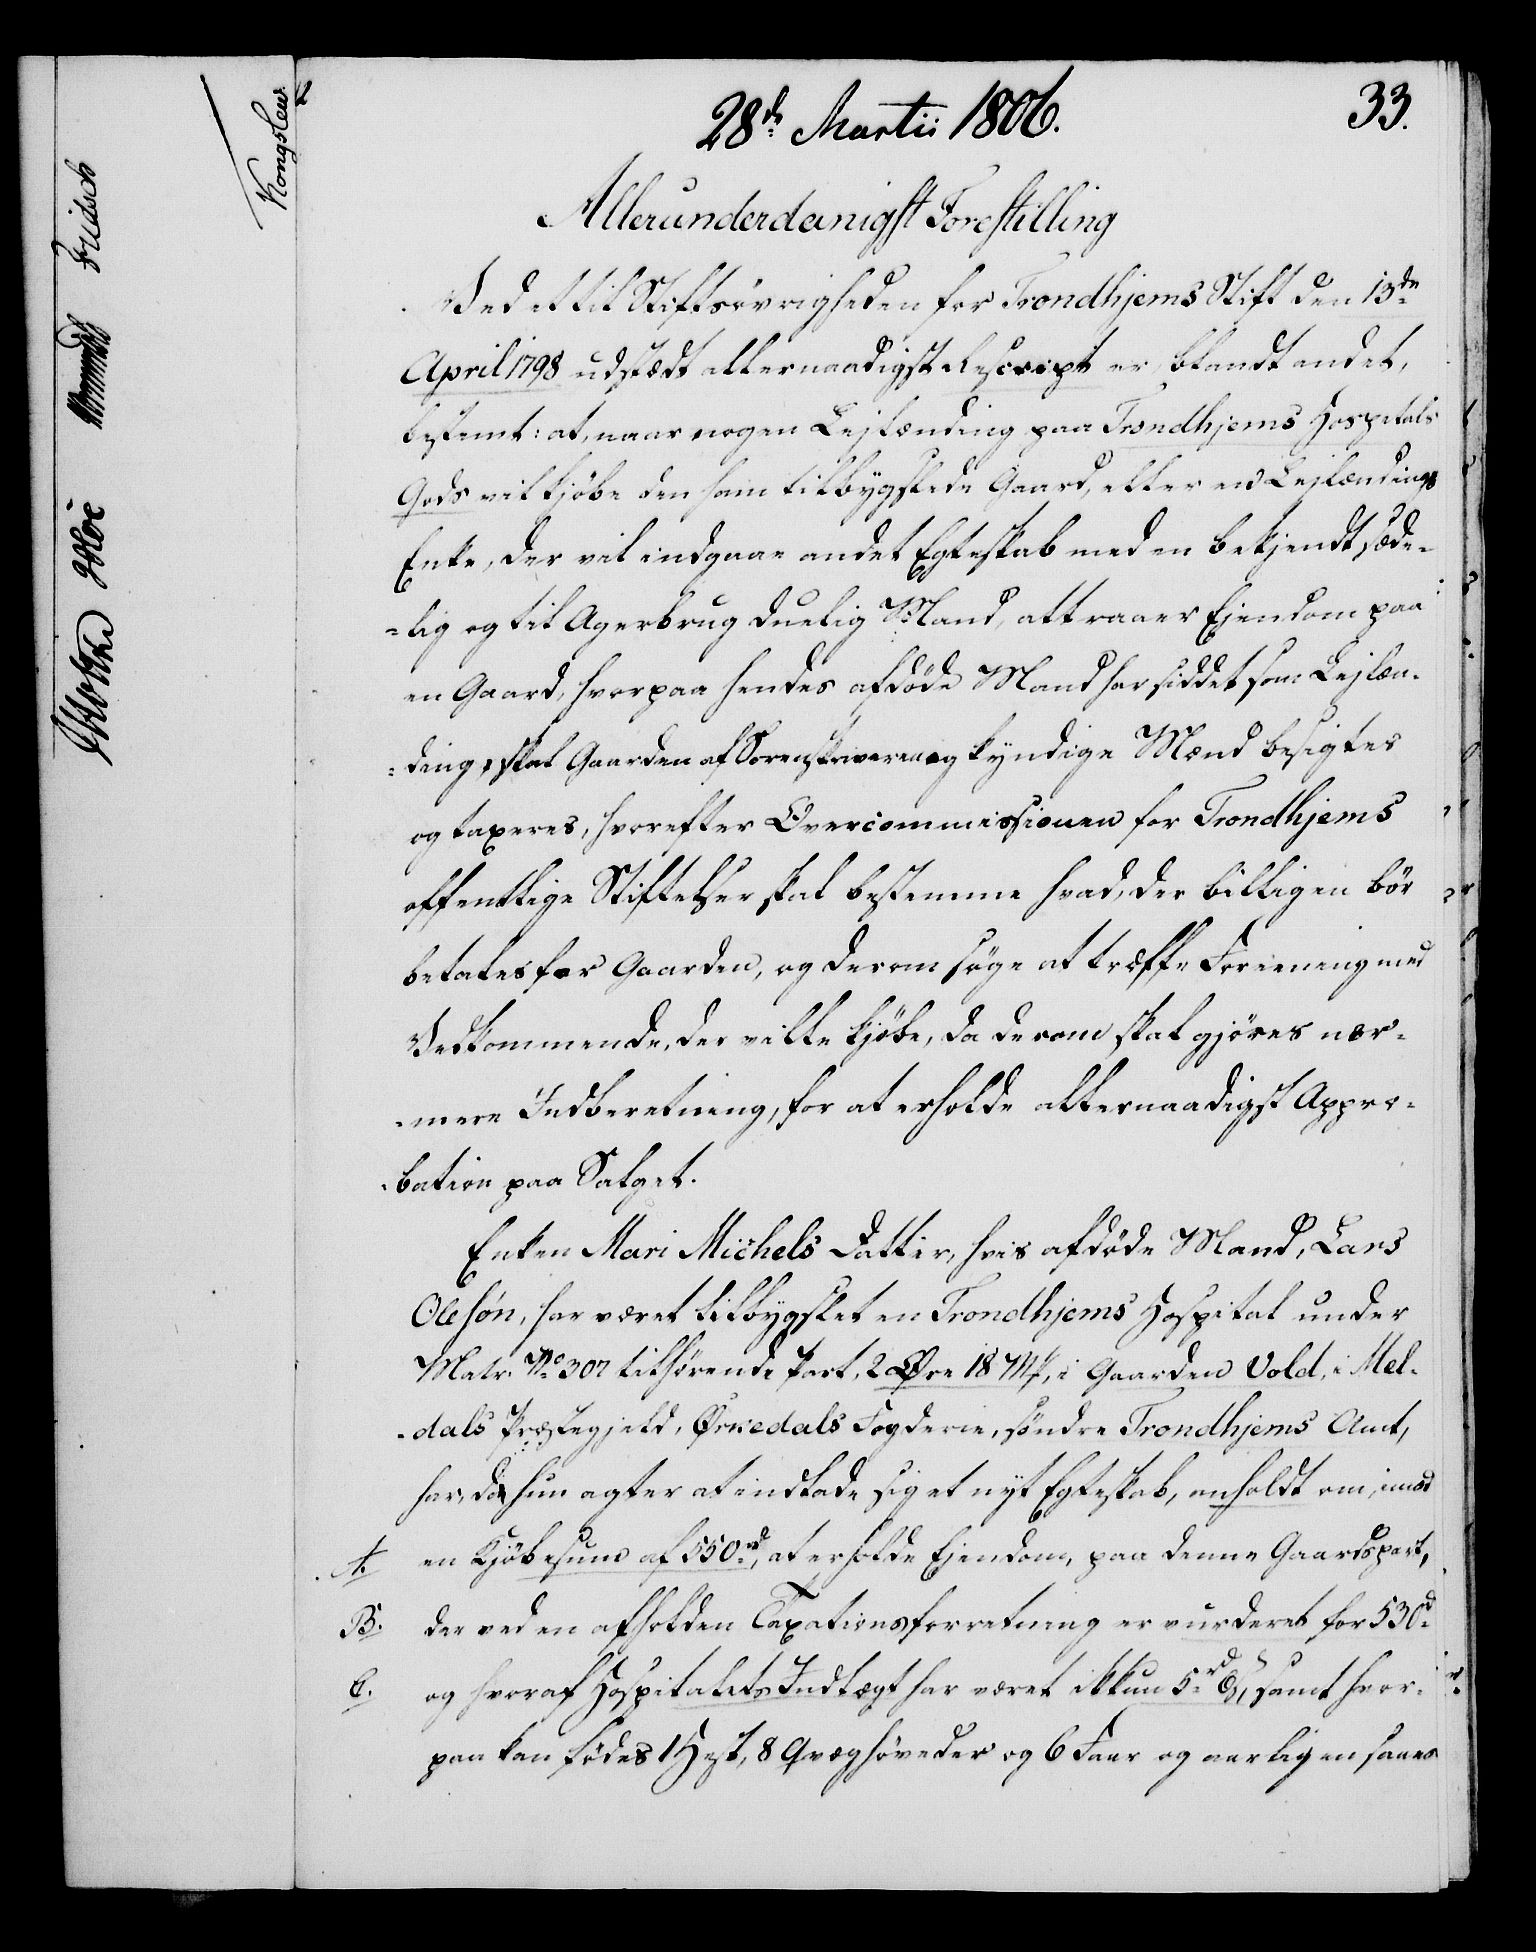 33.
28de Martii 1806.
Allerunderdanigst Forestilling
Ved et til Stiftsøvrigheden for Trondhjems Stift den 13de
April 1798 udstædt allernaadigst Rescript er, blandt andet,
bestemt: at, naar nogen Lejlænding paa Trondhjems Hospitals
Gods vil kjöbe den ham tilbygslede Gaard, eller en Lejlændings
Enke, der vil indgaae andet Egteskab med en bekjendt sæde-
-lig og til Agerbrug duelig Mand, attraaer Ejendom paa
en Gaard, hvorpaa hendes afdöde Mand har siddet som Lejlæn-
-ding, skal Gaarden af Sorenskriveren og kyndige Mænd besigtes
og taxeres, hvorefter Overcommissionen for Trondhjems
offentlige Stiftelser skal bestemme hvad, der billigen bör
betales for Gaarden, og derom söge at træffe Foreening med
Vedkommende, der ville kjöbe, da derom skal gjöres nær-
-mere Indberetning, for at erholde allernaadigst Appro-
-bation paa Salget.
Enken Mari Michels Datter, hvis afdöde Mand, Lars
Olesön, har været tilbygslet en Trondhjems Hospital under
Matr. No 307 tilhörende Part, 2 Øre 18 Mk, i Gaarden Vold, i Mel-
-dals Præstegjeld, Ørkedals Fogderie, söndre Trondhjems Amt,
har, da hun agter at indlade sig et nyt Egteskab, anholdt om, imod
A. en Kjöbesum af 550 rd, at erholde Ejendom, paa denne Gaardspart,
B. der ved en afholden Taxationsforretning er vurderet for 530 rd
C. og hvoraf Hospitalets Indtægt har været ikkun 5 rd 6 s, samt hvor-
paa kan födes 1 Hest, 8 Qvæghöveder og 6 Faar og aarligen saaes
Kongslew
Fridsch
Hoë